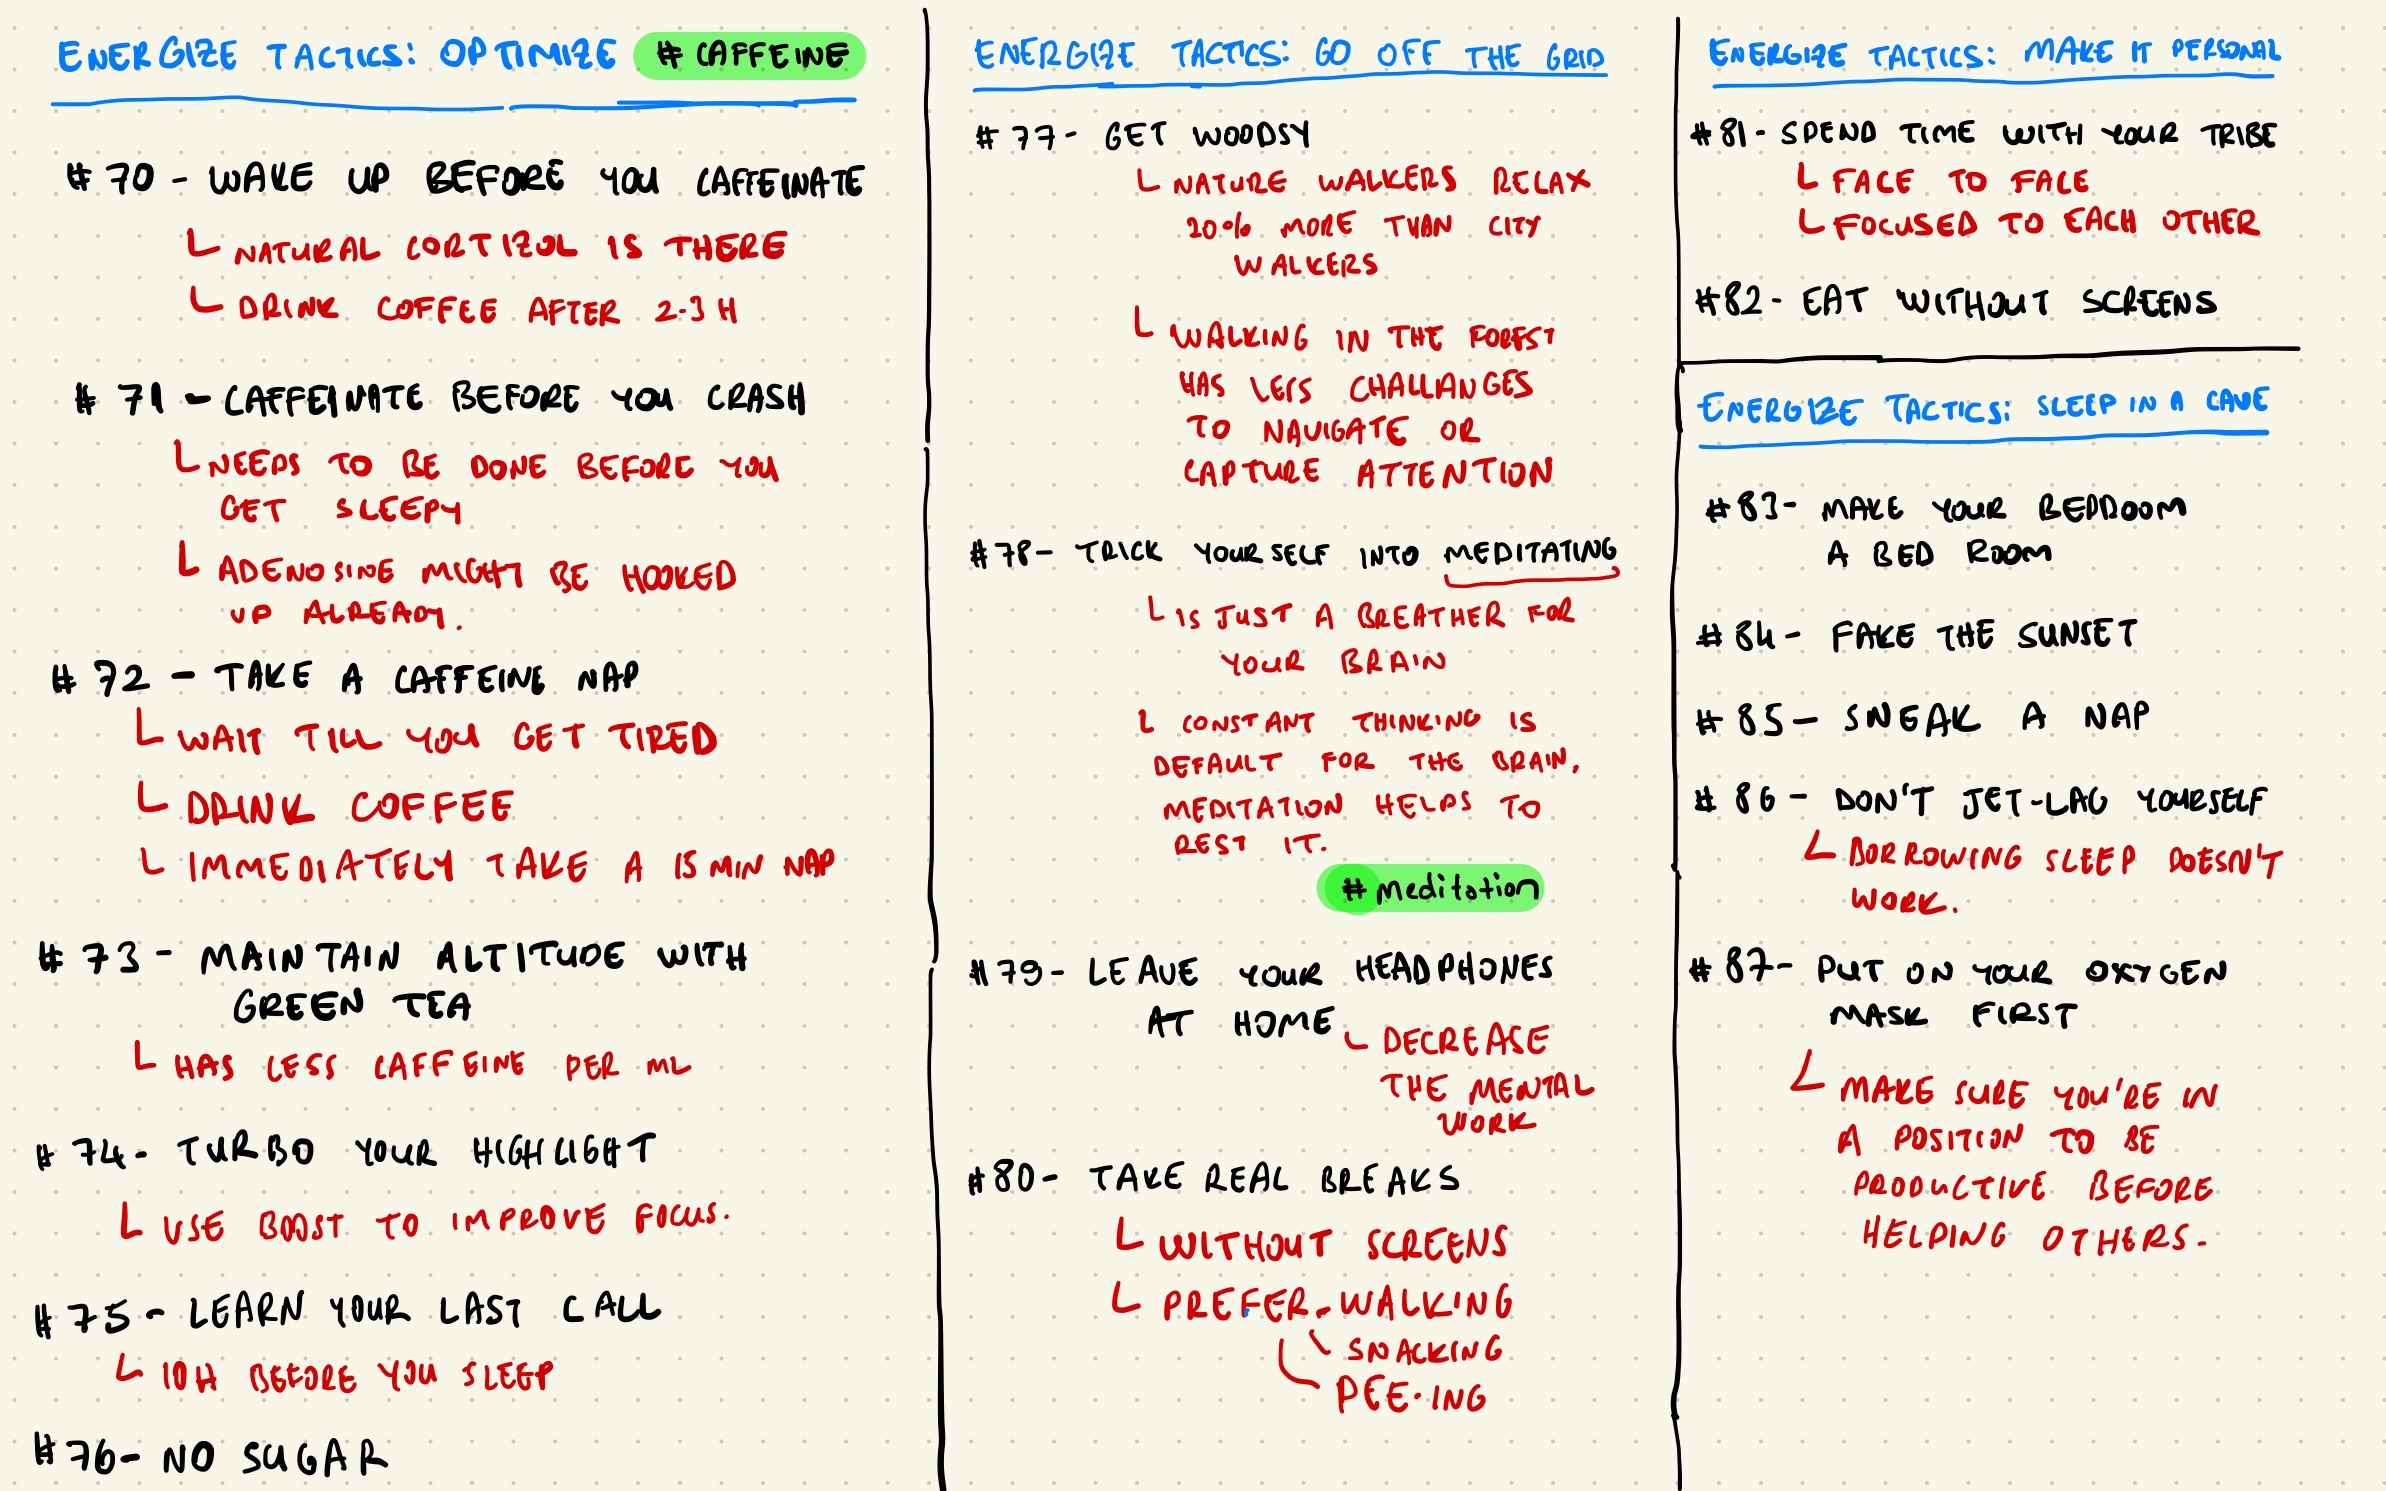 ENERGIZE TACTICS: OPTIMIZE # CAFFEINE
# 70 - WAKE UP BEFORE YOU CAFFEINATE
NATURAL CORTIZOL IS THERE
DRINK COFFEE AFTER 2-3 H
# 71 - CAFFEINATE BEFORE YOU CRASH
NEEDS TO BE DONE BEFORE YOU
GET SLEEPY
ADENOSINE MIGHT BE HOOKED
UP ALREADY.
# 72 - TAKE A CAFFEINE NAP
WAIT TILL YOU GET TIRED
DRINK COFFEE
IMMEDIATELY TAKE A 15 MIN NAP
# 73 - MAINTAIN ALTITUDE WITH
GREEN TEA
HAS LESS CAFFEINE PER ML
# 74 - TURBO YOUR HIGHLIGHT
USE BOOST TO IMPROVE FOCUS.
# 75 - LEARN YOUR LAST CALL
10H BEFORE YOU SLEEP
# 76 - NO SUGAR
ENERGIZE TACTICS: GO OFF THE GRID
# 77 - GET WOODSY
NATURE WALKERS RELAX
20% MORE THAN CITY
WALKERS
WALKING IN THE FOREST
HAS LESS CHALLANGES
TO NAVIGATE OR
CAPTURE ATTENTION
# 78 - TRICK YOURSELF INTO MEDITATING
IS JUST A BREATHER FOR
YOUR BRAIN
CONSTANT THINKING IS
DEFAULT FOR THE BRAIN.
MEDITATION HELPS TO
REST IT.
# meditation
# 79 - LEAVE YOUR HEADPHONES
AT HOME
DECREASE
THE MENTAL
WORK
# 80 - TAKE REAL BREAKS
WITHOUT SCREENS
PREFER - WALKING
SNACKING
PEE-ING
ENERGIZE TACTICS: MAKE IT PERSONAL
# 81 - SPEND TIME WITH YOUR TRIBE
FACE TO FACE
FOCUSED TO EACH OTHER
# 82 - EAT WITHOUT SCREENS
ENERGIZE TACTICS: SLEEP IN A CAVE
# 83 - MAKE YOUR BEDROOM
A BED ROOM
# 84 - FAKE THE SUNSET
# 85 - SNEAK A NAP
# 86 - DON'T JET-LAG YOURSELF
BORROWING SLEEP DOESN'T
WORK.
# 87 - PUT ON YOUR OXYGEN
MASK FIRST
MAKE SURE YOU'RE IN
A POSITION TO BE
PRODUCTIVE BEFORE
HELPING OTHERS.